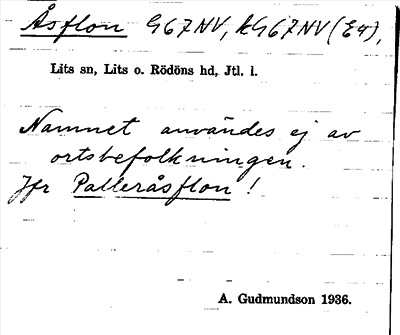 Åsflon G67NV, kG67NV(Ev),
Lits sn, Lits o. Rödöns hd, Jtl. l.
Namnet användes ej av
ortsbefolkningen.
Jfr Palleråsflon!
A. Gudmundson 1936.